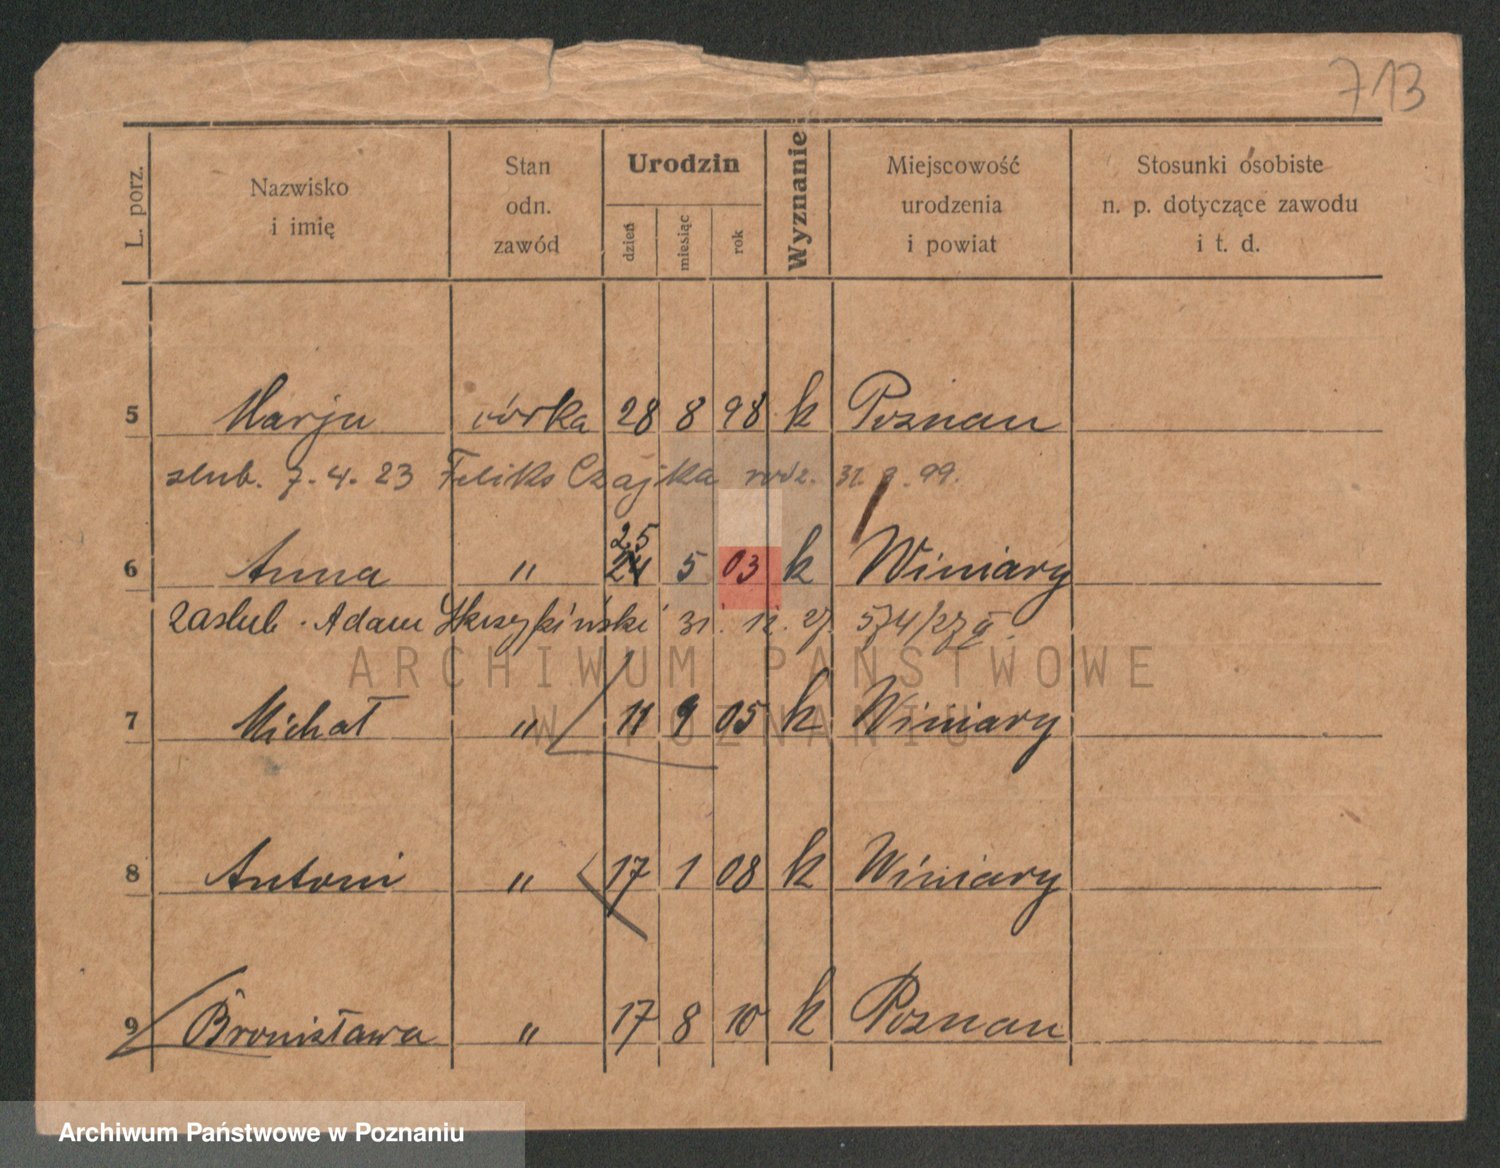 713
L. porz. Nazwisko i imię Stan odn. zawód Urodzin dzień miesiąc rok Wyznanie Miejscowość urodzenia i powiat Stosunki osobiste n. p. dotyczące zawodu i t. d.
5 Marja córka 28 8 98 k Poznan
slub. 7.4.23 Feliks Czajka rodz. 31. 9. 99.
25
6 Anna " 24 5 03 k Winiary
zaslub. Adam Skrzypiński 31. 12. 27. 574/27 II.
ARCHIWUM PAŃSTWOWE
7 Michał " 11 9 05 k Winiary
W POZNANIU
8 Antoni " 17 1 08 k Winiary
9 Bronisława " 17 8 10 k Poznan
Archiwum Państwowe w Poznaniu